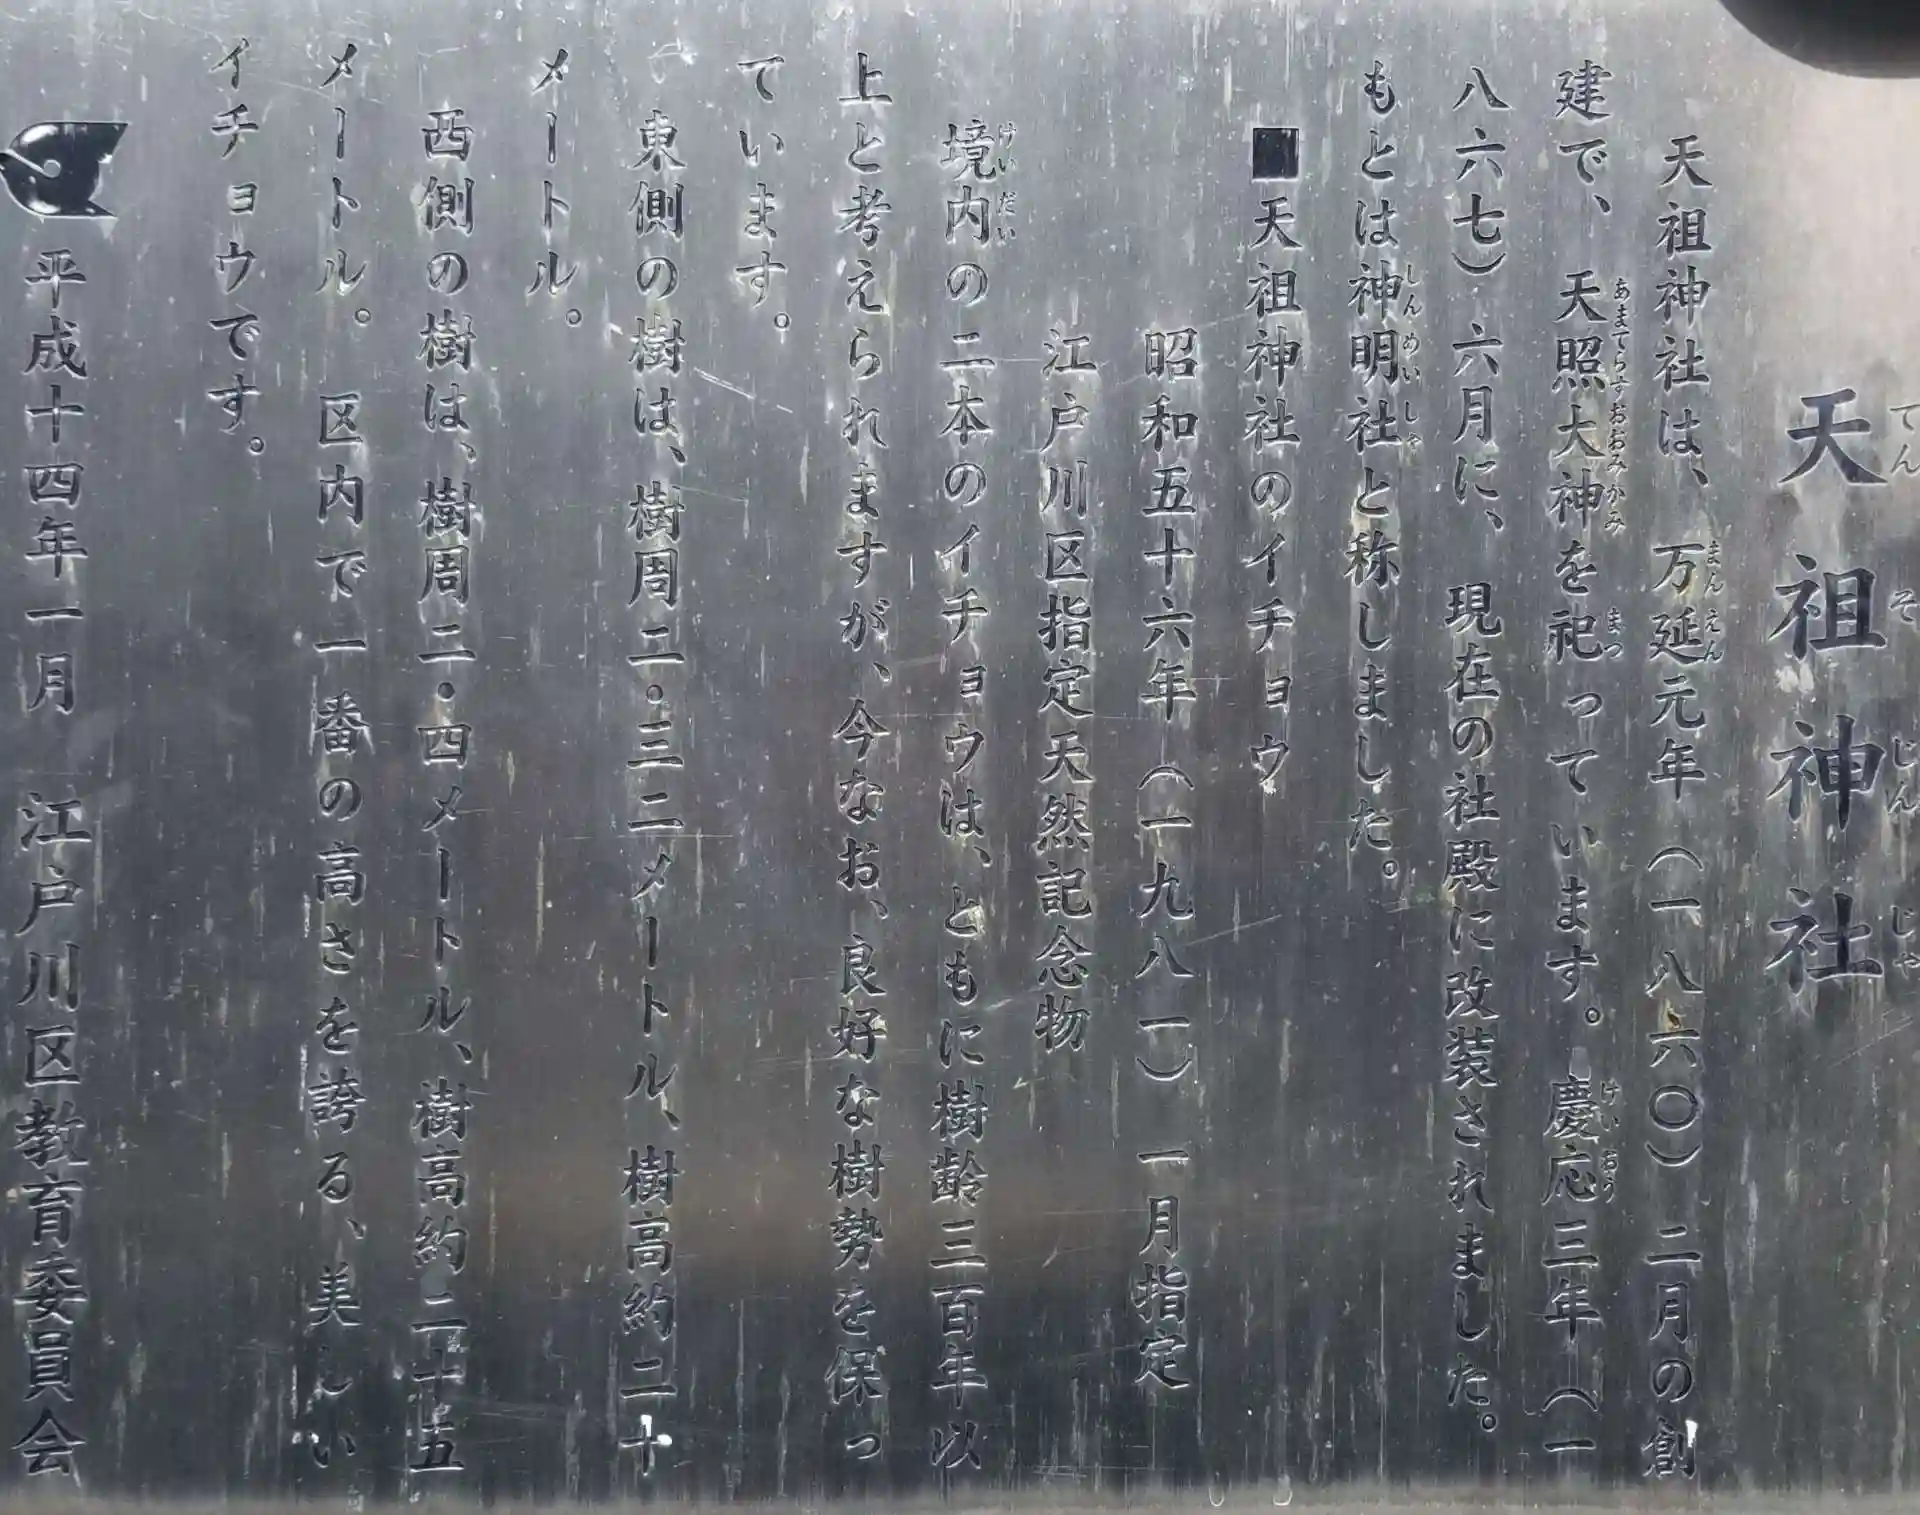 天祖神社
てんそじんじゃ
天祖神社は、万延元年（一八六〇）二月の創
まんえん
建で、天照大神を祀っています。慶応三年（一
あまてらすおおみかみ まつ けいおう
八六七）六月に、現在の社殿に改装されました。
もとは神明社と称しました。
しんめいしゃ
■天祖神社のイチョウ
昭和五十六年（一九八一）一月指定
江戸川区指定天然記念物
境内の二本のイチョウは、ともに樹齢三百年以
けいだい
上と考えられますが、今なお、良好な樹勢を保っ
ています。
東側の樹は、樹周二・三二メートル、樹高約二十
メートル。
西側の樹は、樹周二・四メートル、樹高約二十五
メートル。区内で一番の高さを誇る、美しい
イチョウです。
平成十四年一月 江戸川区教育委員会